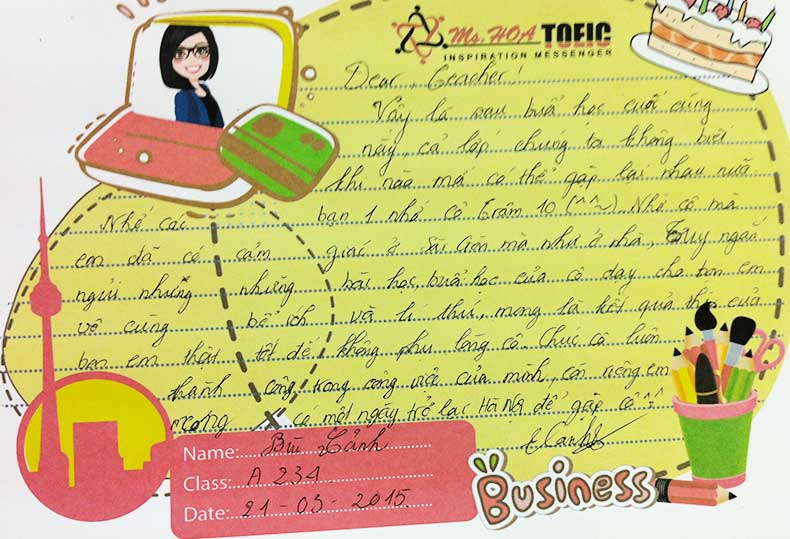 Ms. HOA TOEIC
INSPIRATION MESSENGER
Dear, Teacher!
Vậy là sau buổi học cuối cùng
này, cả lớp chúng tôi không biết
khi nào mà có thể gặp lại nhau nữa
bạn 1 nhỏ cô Trâm 10 (^^~). Nhờ cô mà
Nhờ các
em đã có cảm giác ở Sài Gòn mà như ở nhà, Tuy ngắn
ngủi nhưng những bài học, buổi học của cô dạy cho bọn em
vô cùng bổ ích và lí thú, mong là kết quả thi của
bọn em thật tốt để không phụ lòng cô. Chúc cô luôn
thành công trong công việc của mình, còn riêng em
mong có một ngày trở lại Hà Nội để gặp cô ^^
Name: Bùi Cảnh
Class: A 234
Date: 21 - 03 - 2015.
BUSINESS